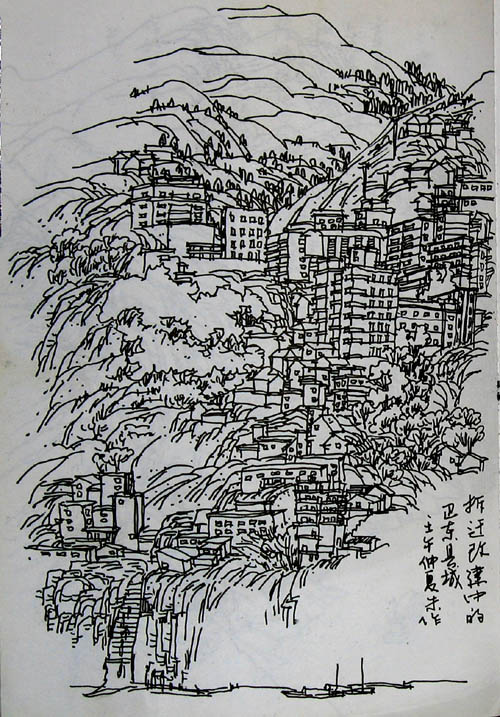 拆迁改建中的
巴东县城
壬午仲夏作